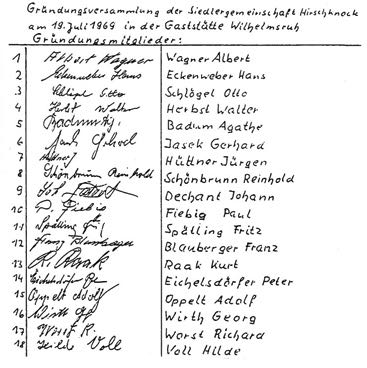 Gründungsversammlung der Siedlergemeinschaft Hirschknock
am 19. Juli 1969 in der Gaststätte Wilhelmsruh
Gründungsmitglieder:
1 Albert Wagner Wagner Albert
2 Eckenweber Hans Eckenweber Hans
3 Schlögel Otto Schlögel Otto
4 Herbst Walter Herbst Walter
5 Badum Agathe
6 Jasek Gerhard
7 Hüttner Jürgen
8 Schönbrunn Reinhold Schönbrunn Reinhold
9 Dechant Johann
10 P. Fiebig Fiebig Paul
11 Spälling Spälling Fritz
12 Franz Blauberger Blauberger Franz
13 R. Raak Raak Kurt
14 Eichelsdörfer Pe Eichelsdörfer Peter
15 Oppelt Adolf Oppelt Adolf
16 Wirth Wirth Georg
17 Worst R. Worst Richard
18 Hilde Voll Voll Hilde